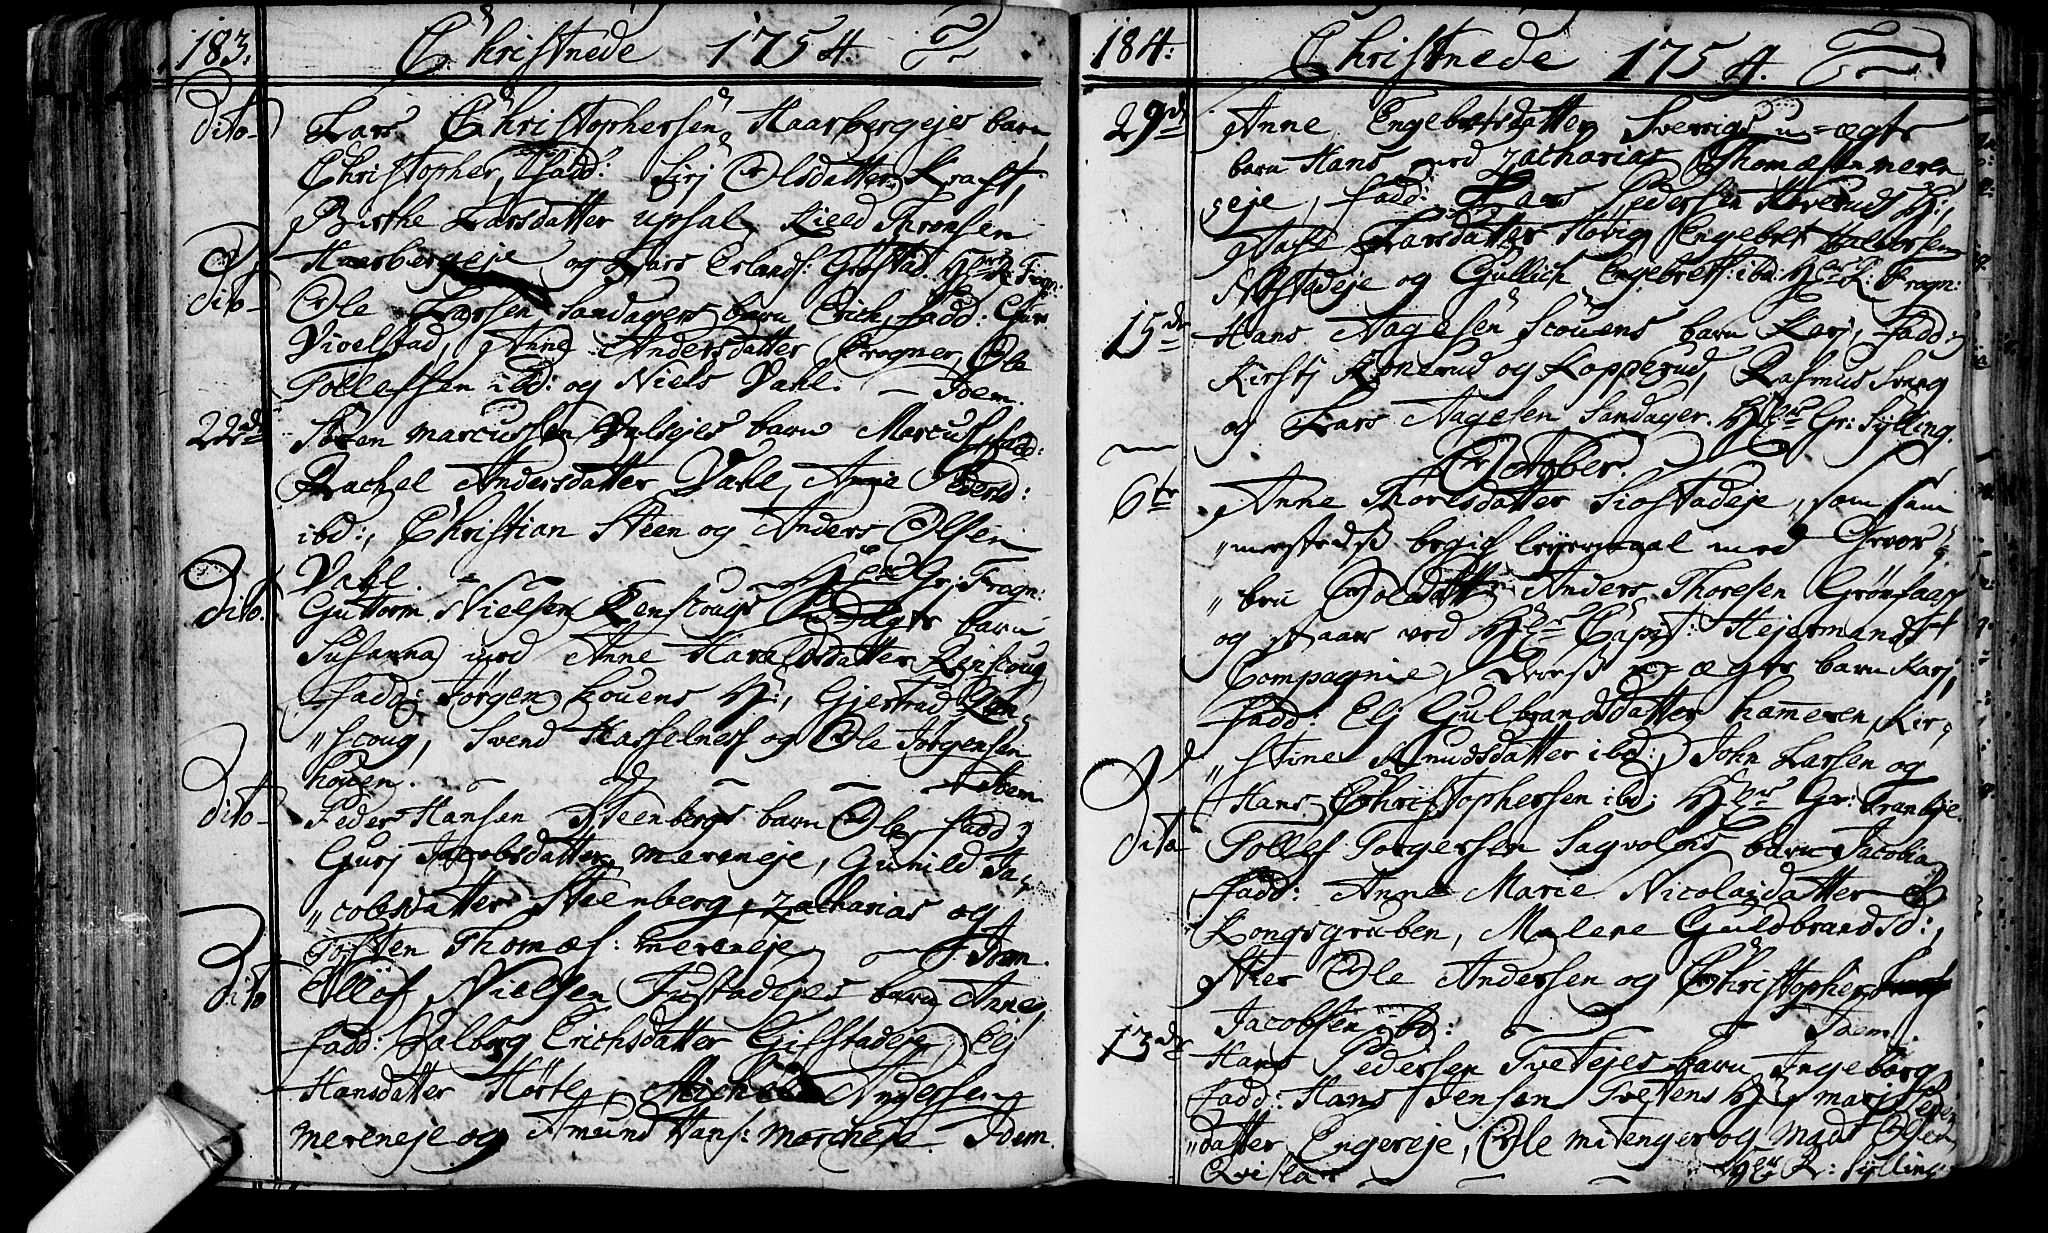 183. Christnede 1754.
dito Lars Christophersen Haarbergejes barn
Christopher, Fadd: Sirj Olsdatter Kraft,
Birthe Larsdatter Upsal, Kield Thronsen
Haarbergeje og Lars Erlands: Grøstad. Hr: Fragn:
dito Ole Larsen Sandagers barn Erich, fadd:
Vivelstad, Anne Andersdatter Frogner, Ole
Tollefsen ibd: og Niels Vahl. Idem.
22de Steen Marcussen barn Marcus, fadd:
Rachel Andersdatter Vahl, Anne Peders d:
ibd:, Christian Steen og Anders Olsen
Vahl. Hr Gr: Fragn:
dito. Guttorm Nielsen Renscougs u-ægte barn
Susanna med Anne datter Renscoug
fadd: Jørgen houens H:, Gjertrud Ren-
"scoug, Svend Hasselness og Ole Jørgensen
houen. Idem
dito Peder Hansen Steenbergs barn Ole, fadd:
Gurj Jacobsdatter mereneje, Gunild Ja-
"cobsdatter Steenberg, Zacharias og
Tosten Thomæs: mereneje Idem.
dito Ellöf Nielsen barn Anne,
fadd: Valborg Erichsdatter Gifstadeje, Elj
Hansdatter Hörte, Michel Andersen
mereneje og Amund Hans: mereneje. Idem
184: Christnede 1754.
29de Anne Engebretsdatter Sverrigs u-ægte
barn Hans med Zacharias Thomæsen meren
eje, fadd: Lars Pedersen H:,
Larsdatter Høvig, Engebret Halvorsen
og Gullich Engebrets: ibd: Hr R: Fragn:
15de Hans Aagesen Scouens barn Karj, fadd:
Kirstj Konerud og Kopperud, Rasmus Svang
og Lars Aagesen Sandager. Hr Gr: Sylling.
October.
6te Anne Thoresdatter Siostadeje, som sam
"mestedss begik leyermaal med Grvor
"bru Soldatt Anders Thoresen
og staar ved Hr Capit: Hejermands
Compagnie, Derss u-ægte barn Karj,
fadd: Elj Gulbrandsdatter hammeren, Kir-
"stine Knudsdatter ibd:, John Larsen og
Hans Christophersen ibd: Hr Gr: Tranbye.
dito Tollef Torgersen Sagvolds barn Jacobia
fadd: Anne Marie Nicolaidatter
Kongsgruben, Malene Guldbrandsd:,
Ole Andersen og Christopher
Jacobsen ibd: Idem.
13de Hans Pedersen Tvetejes barn Ingeborg
fadd: Hans Jensen Tvetens H:, marj Peders
"datter Engereje, Ole mitenger og Mads Olsen
Hr R: Sylling